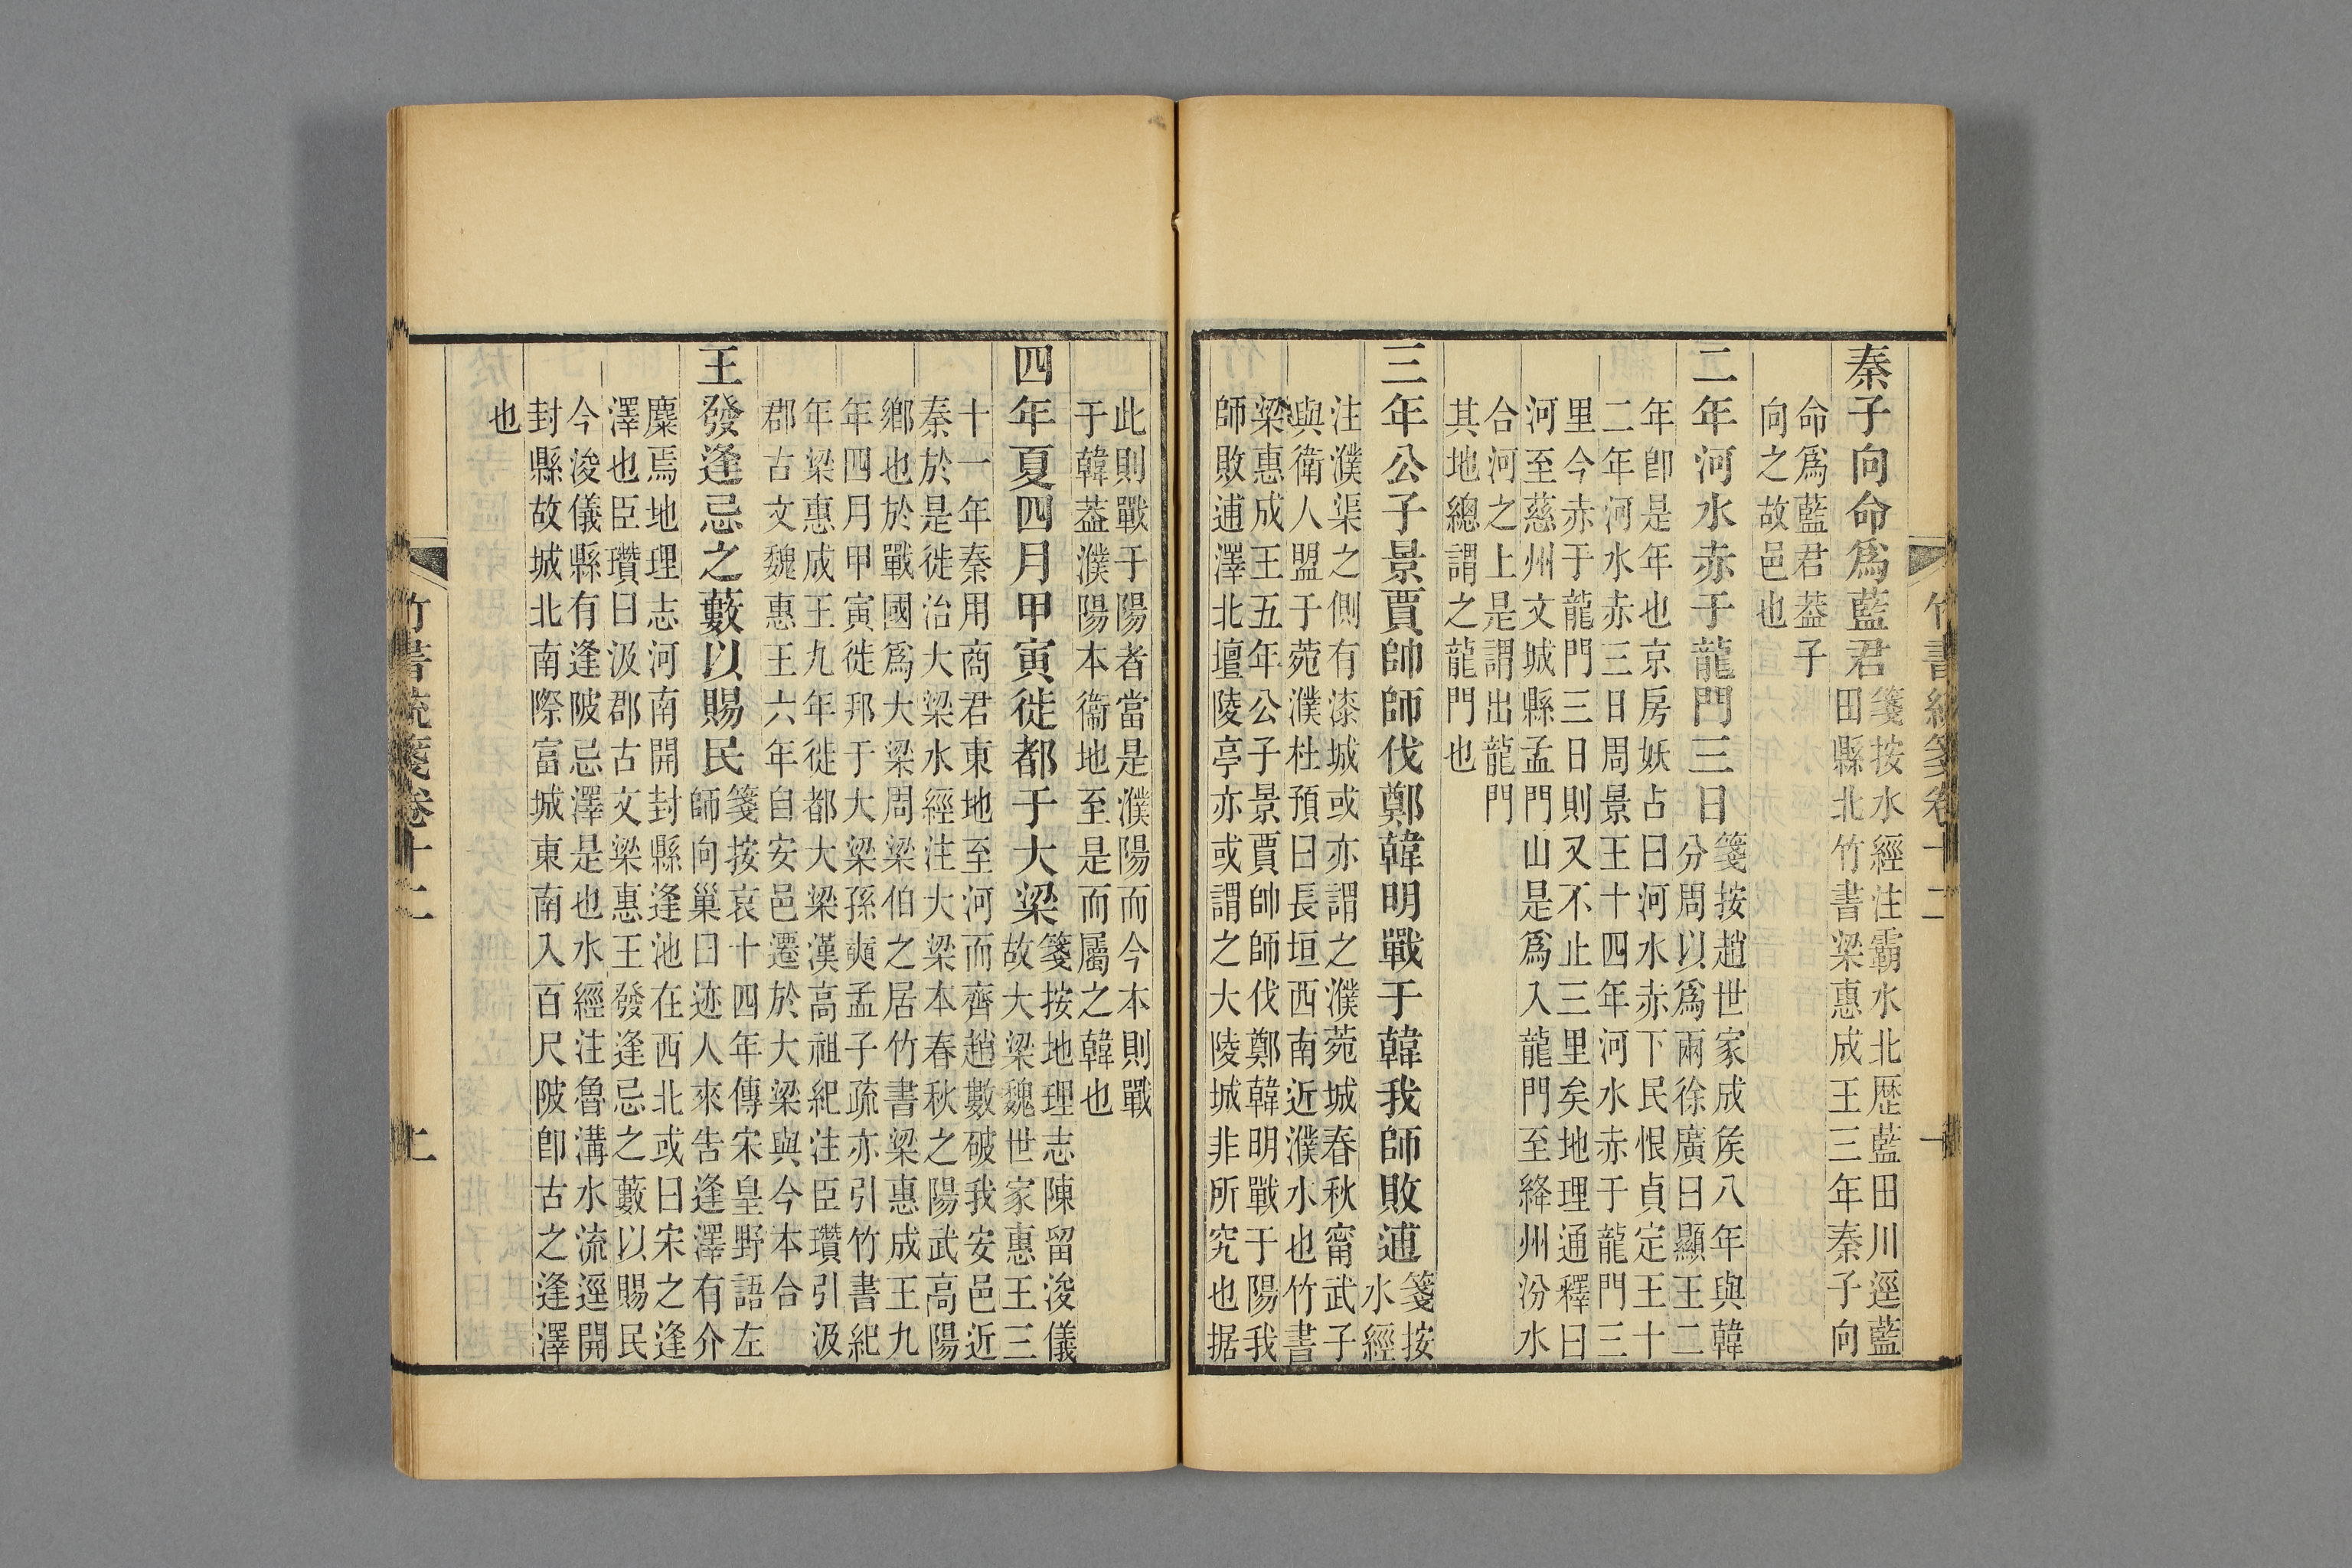 竹書統箋卷十二
秦子向命爲藍君
箋按水經注霸水北歴藍田川逕藍
田縣北竹書梁惠成王三年秦子向
命爲藍君葢子
向之故邑也
二年河水赤于龍門三日
箋按趙世家成矦八年與韓
分周以爲兩徐廣曰顯王二
年卽是年也京房妖占曰河水赤下民恨貞定王十
二年河水赤三日周景王十四年河水赤于龍門三
里今赤于龍門三日則又不止三里矣地理通釋曰
河至慈州文城縣孟門山是爲入龍門至絳州汾水
合河之上是謂出龍門
其地總謂之龍門也
三年公子景賈帥師伐鄭韓明戰于韓我師敗逋
箋按
水經
注濮渠之側有漆城或亦謂之濮菀城春秋甯武子
與衛人盟于菀濮杜預曰長垣西南近濮水也竹書
梁惠成王五年公子景賈帥師伐鄭韓明戰于陽我
師敗逋澤北壇陵亭亦或謂之大陵城非所究也据
此則戰于陽者當是濮陽而今本則戰
于韓葢濮陽本衞地至是而屬之韓也
四年夏四月甲寅徙都于大梁
箋按地理志陳留浚儀
故大梁魏世家惠王三
十一年秦用商君東地至河而齊趙數破我安邑近
秦於是徙治大梁水經注大梁本春秋之陽武高陽
鄉也於戰國爲大梁周梁伯之居竹書梁惠成王九
年四月甲寅徙邦于大梁孫奭孟子疏亦引竹書紀
年梁惠成王九年徙都大梁漢高祖紀注臣瓚引汲
郡古文魏惠王六年自安邑遷於大梁與今本合
王發逢忌之藪以賜民
箋按哀十四年傳宋皇野語左
師向巢曰迹人來告逢澤有介
麋焉地理志河南開封縣逢池在西北或曰宋之逢
澤也臣瓚曰汲郡古文梁惠王發逢忌之藪以賜民
今浚儀縣有逢陂忌澤是也水經注魯溝水流逕開
封縣故城北南際富城東南入百尺陂卽古之逢澤
也
竹書統箋卷十二